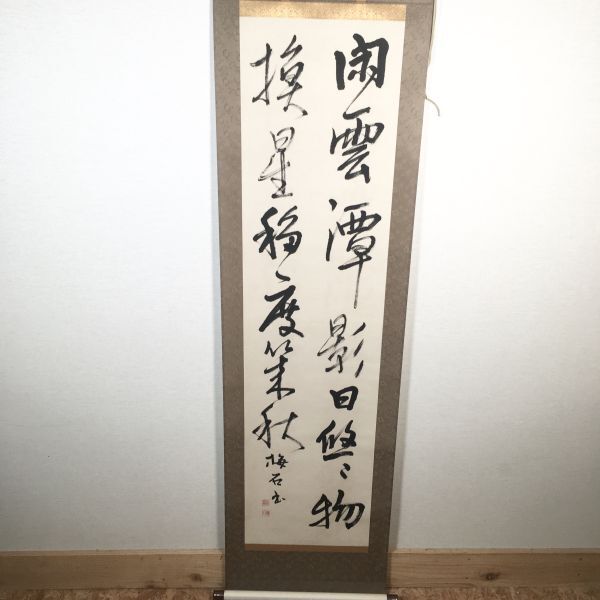 閑雲潭影日悠〻物
換星移度幾秋
梅石書